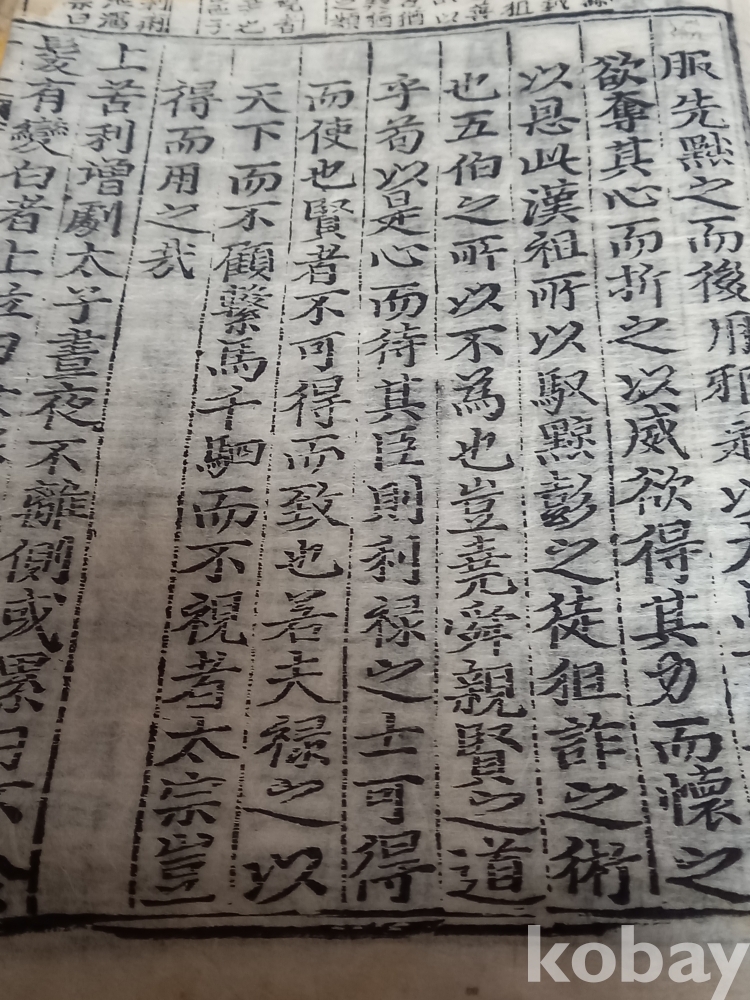 服先點之而後用邪
欲奪其心而折之以威欲得其力而懷之
以恩此漢祖所以馭黥彭之徒狙詐之術
也五伯之所以不為也豈堯舜親賢之道
乎苟以是心而待其臣則利祿之士可得
而使也賢者不可得而致也若夫祿之以
天下而不顧繫馬千駟而不視者太宗豈
得而用之哉
上苦利增劇太子晝夜不離側或累日不食
髮有變白者上泣曰
kobay